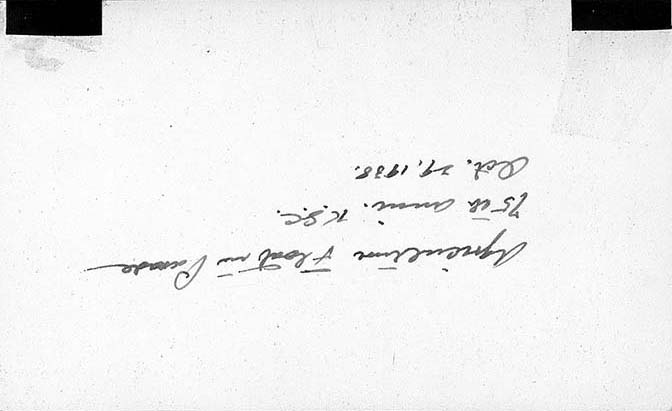 Agriculture Float in Parade
75th anni. K.S.C.
Oct. 29, 1938.